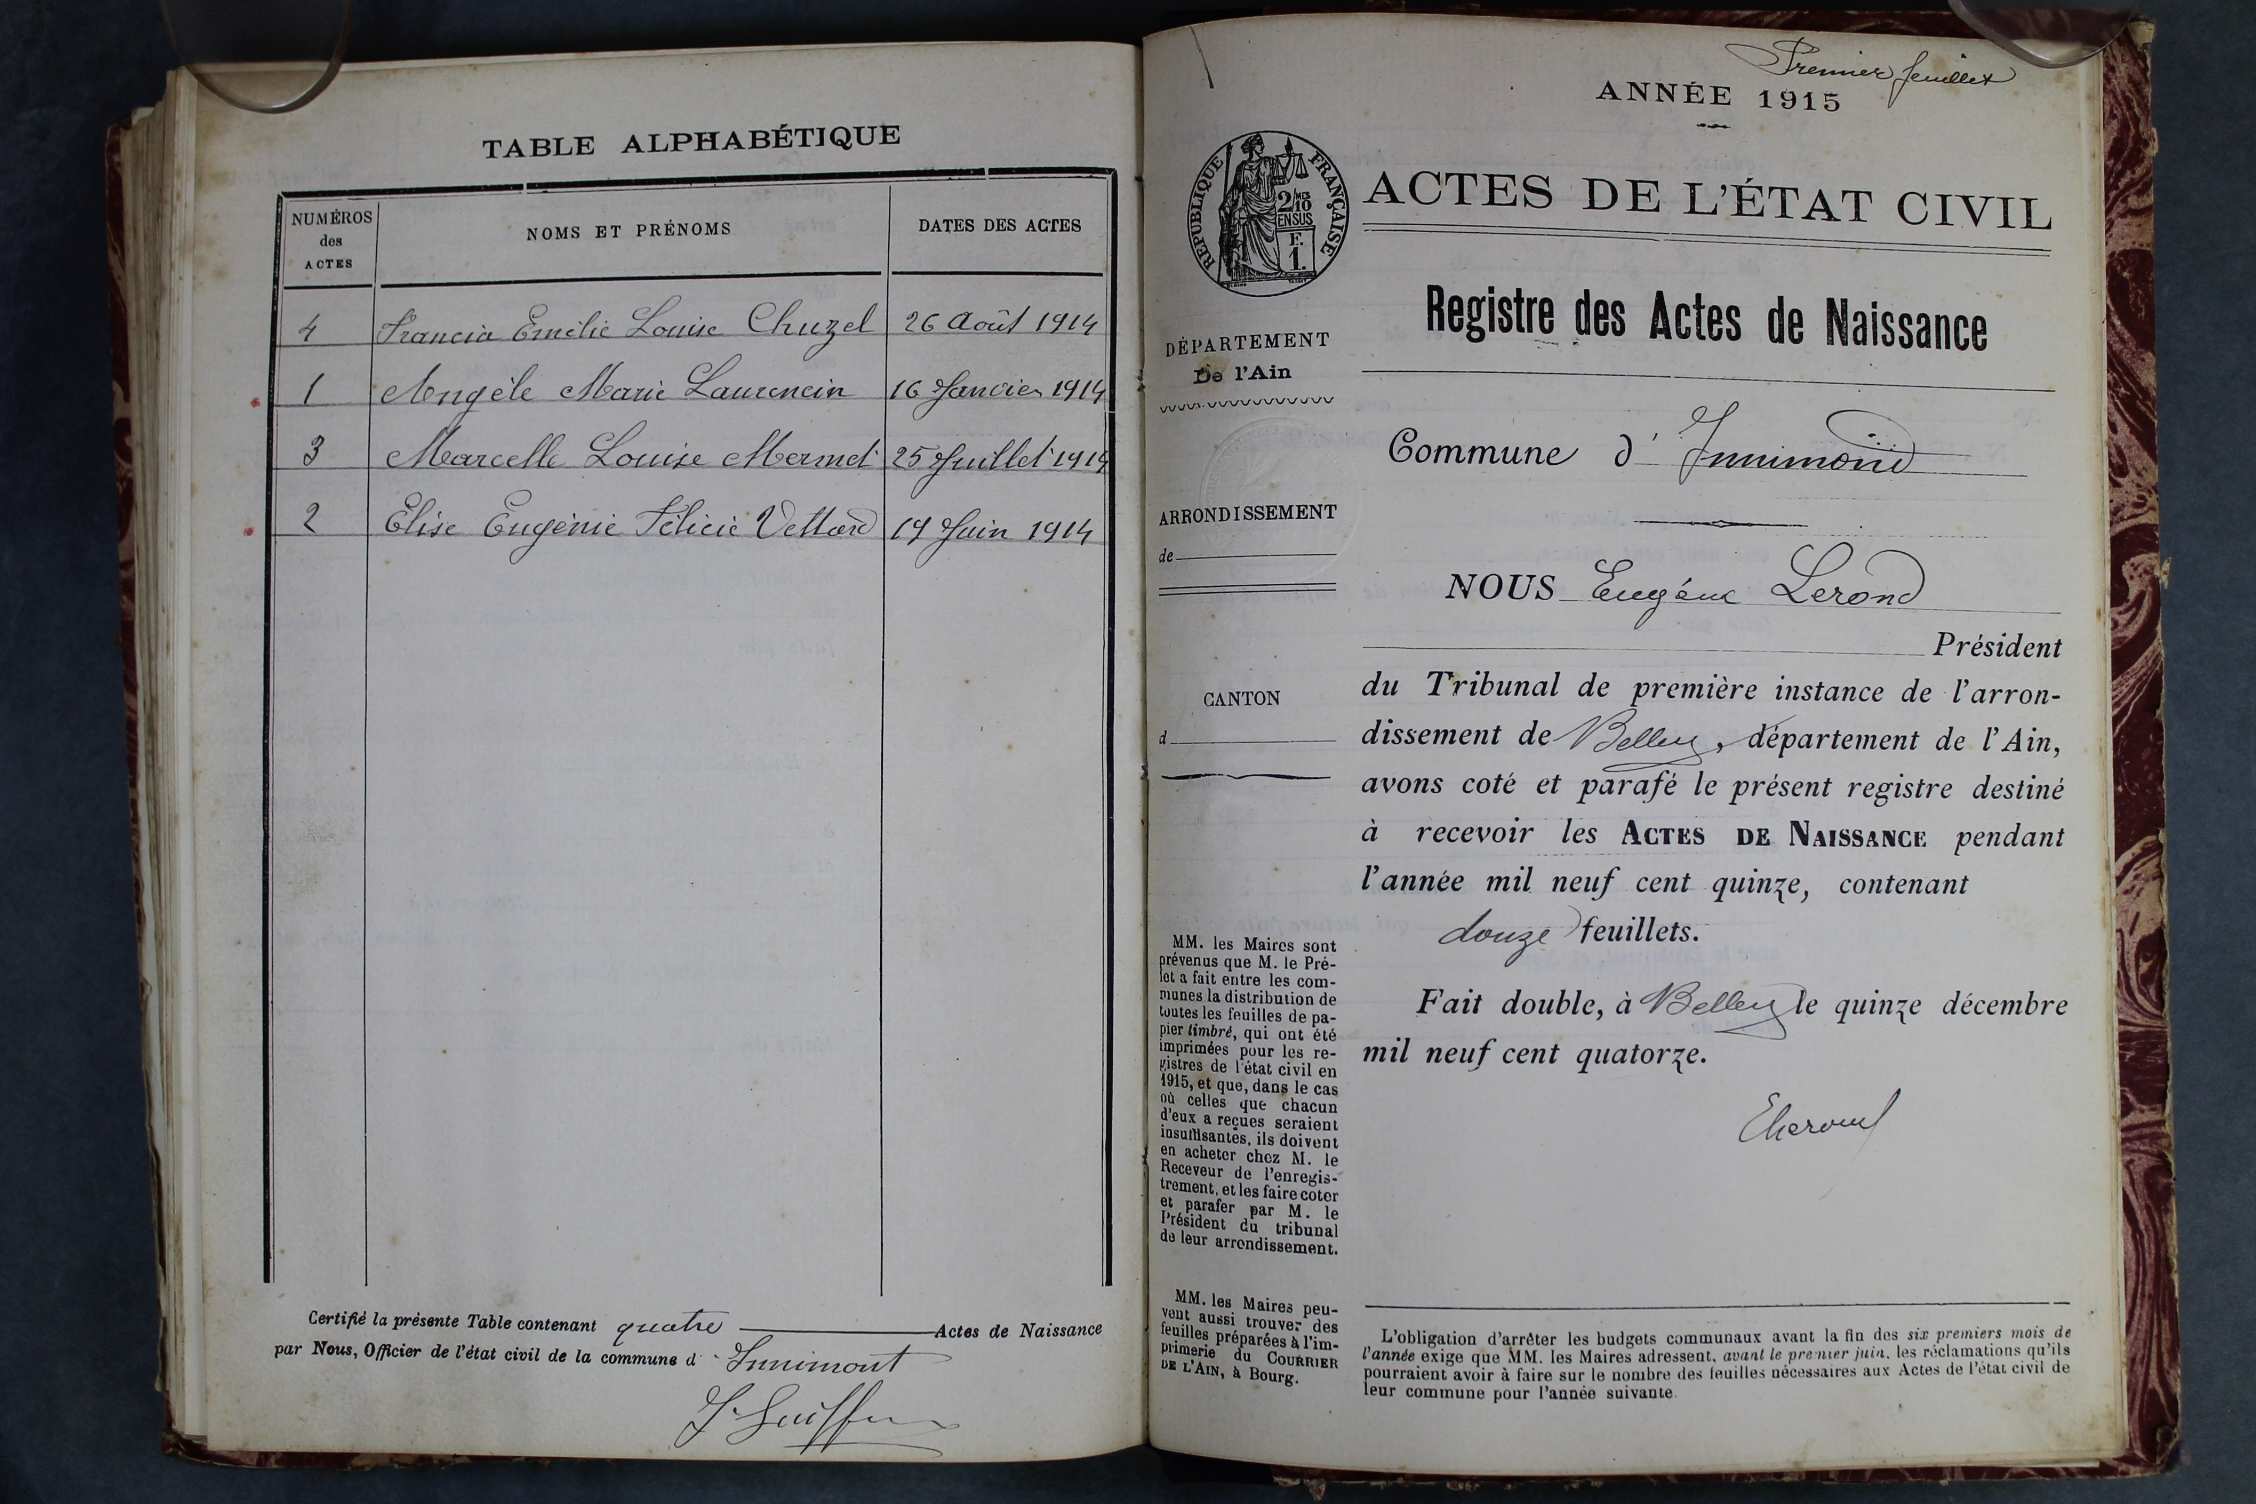 TABLE ALPHABÉTIQUE
NUMÉROS des ACTES
NOMS ET PRÉNOMS
DATES DES ACTES
4 Francia Emélie Louise Chuzel 26 Août 1914
1 Angèle Marie Laurencin 16 Janvier 1914
3 Marcelle Louise Mermet 25 Juillet 1914
2 Elise Eugénie Félicie Vettard 19 Juin 1914
Certifié la présente Table contenant quatre Actes de Naissance
par Nous, Officier de l'état civil de la commune d' Innimont
Premier feuillet
ANNÉE 1915
RÉPUBLIQUE FRANÇAISE
2/MES 10
EN SUS
F.
1.
ACTES DE L'ÉTAT CIVIL
Registre des Actes de Naissance
DÉPARTEMENT
De l'Ain
ARRONDISSEMENT
de
CANTON
d
Commune d' Innimond
NOUS Eugène Lerond
Président
du Tribunal de première instance de l'arron-
dissement de Belley, département de l'Ain,
avons coté et parafé le présent registre destiné
à recevoir les ACTES DE NAISSANCE pendant
l'année mil neuf cent quinze, contenant
douze feuillets.
Fait double, à Belley le quinze décembre
mil neuf cent quatorze.
MM. les Maires sont
prévenus que M. le Pré-
fet a fait entre les com-
munes la distribution de
toutes les feuilles de pa-
pier timbré, qui ont été
imprimées pour les re-
gistres de l'état civil en
1915, et que, dans le cas
où celles que chacun
d'eux a reçues seraient
insuffisantes, ils doivent
en acheter chez M. le
Receveur de l'enregis-
trement, et les faire coter
et parafer par M. le
Président du tribunal
de leur arrondissement.
MM. les Maires peu-
vent aussi trouver des
feuilles préparées à l'im-
primerie du COURRIER
DE L'AIN, à Bourg.
L'obligation d'arrêter les budgets communaux avant la fin des six premiers mois de
l'année exige que MM. les Maires adressent, avant le premier juin, les réclamations qu'ils
pourraient avoir à faire sur le nombre des feuilles nécessaires aux Actes de l'état civil de
leur commune pour l'année suivante.